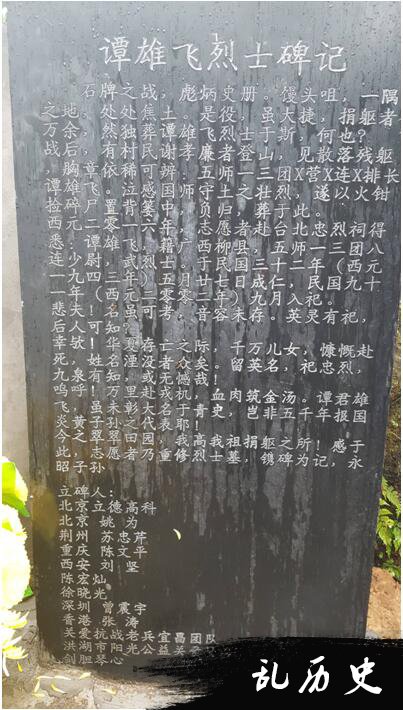 谭雄飞烈士碑记
石牌之战，彪炳史册。馒头咀，一隅
之地，处处焦土。是役，虽大捷，捐躯者
万余，然独葬谭雄飞烈士于斯，何也？
战后，有村民谢孝廉者登山，见散落残躯
，胸章依稀可辨：五师一三团X营X连X排长
谭雄飞。泣感国军守土之壮烈，遂以火钳
捡碎尸置背篓，负归，葬于此。
西元二零一六年，志愿者赴台北忠烈祠得
悉：谭雄飞，广西柳县，五师一三团八
连少尉，于民国三十二年（西元
一九四三）五月二十七日成仁，民国九十
一年（西元二零零二年）九月入祀。
悲夫！名可考，音容未存。英灵有祀，
后人可知？存亡之际，千万儿女，慷慨赴
死，姓名湮没亡者众矣。留英名，祀忠烈，
九泉有知，或无憾哉！
呜呼！万里赴戎机，血肉筑金汤。谭君雄
飞，虽未彰大名于青史，岂非五千年报国
炎黄之代表耶！
今翠园者，我高我祖捐躯之所！感于
此，乃重修烈士墓，镌碑为记，永
昭子孙
立碑人：
北京立德高科
北京 姚为
荆州 苏忠芹
重庆 陈文平
西安 刘坚
陈宏灿
徐晓光
深圳 曾震宇
香港 张涛
关爱抗战老兵宜昌团队
乱历史